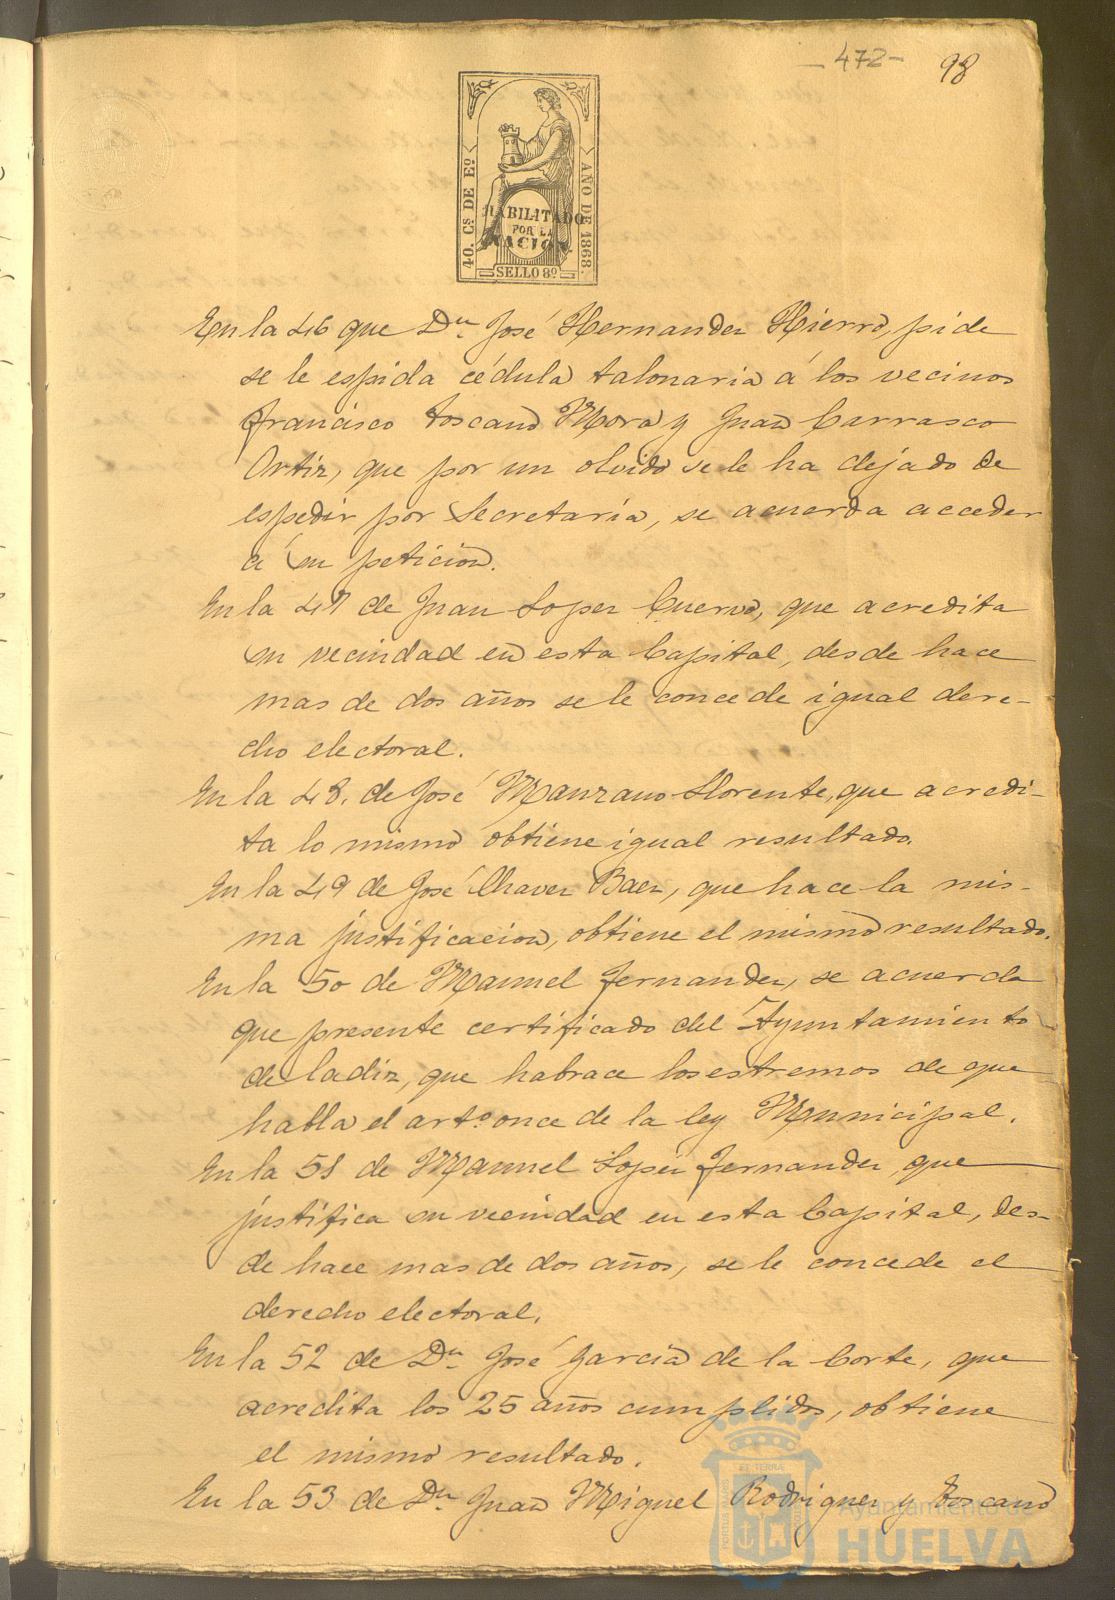 - 472 - 98
40. Cs. DE Eo.
AÑO DE 1868.
HABILITADO
POR LA
NACION
SELLO 8º
En la 46 que Dn. José Hernandez Hierro, pide
se le espida cédula talonaria á los vecinos
Francisco Toscano Mora y Juan Carrasco
Ortiz, que por un olvido se le ha dejado de
espedir por Secretaría, se acuerda acceder
á su peticion.
En la 47 de Juan Lopez Cuervo, que acredita
su vecindad en esta Capital, desde hace
mas de dos años se le concede igual dere-
cho electoral.
En la 48. de José Manzano Llorente, que acredi-
ta lo mismo obtiene igual resultado.
En la 49 de José Chavez Baez, que hace la mis-
ma justificacion, obtiene el mismo resultado.
En la 50 de Manuel Fernandez, se acuerda
que presente certificado del Ayuntamiento
de Cadiz, que habrace los estremos de que
habla el arto. once de la ley Municipal.
En la 51 de Manuel Lopez Fernandez, que
justifica su vecindad en esta Capital, des-
de hace mas de dos años, se le concede el
derecho electoral.
En la 52 de Dn. José Garcia de la Corte, que
acredita los 25 años cumplidos, obtiene
el mismo resultado.
En la 53 de Dn. Juan Miguel Rodriguez y Toscano
Ayuntamiento de
HUELVA